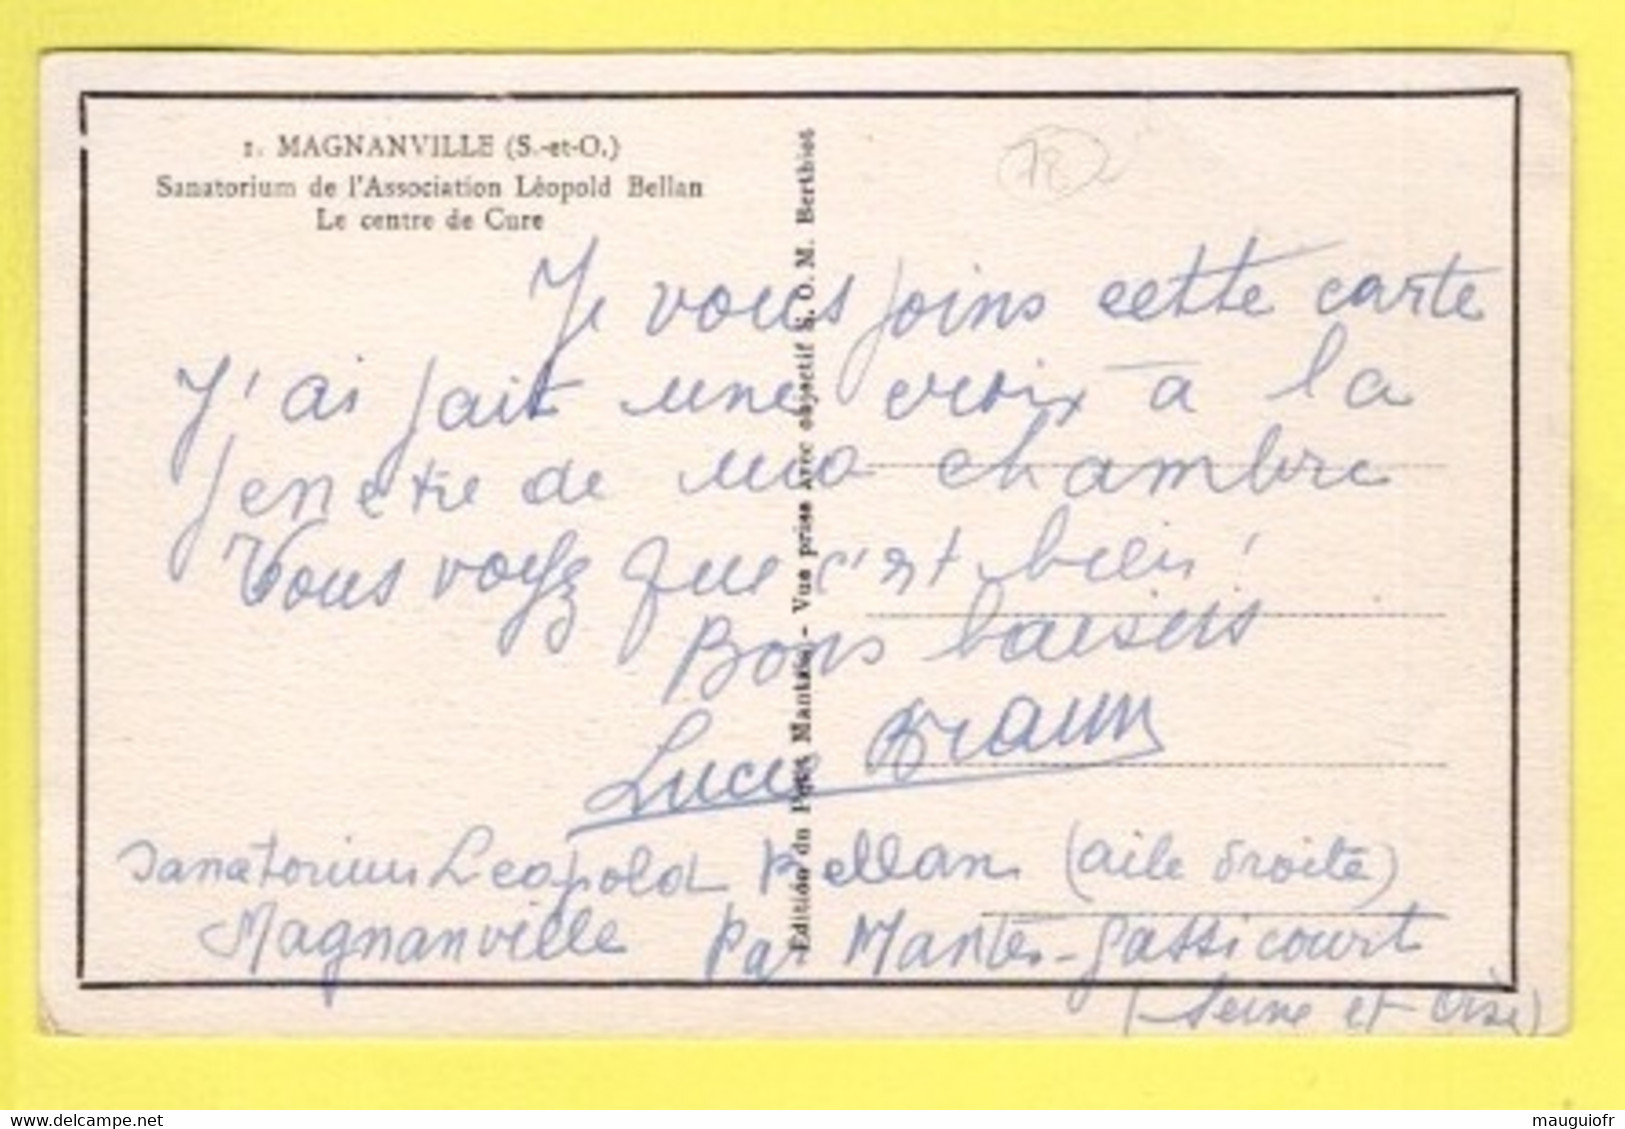 1. MAGNANVILLE (S.-et-O.)
Sanatorium de l'Association Léopold Bellan
Le centre de Cure
78
Edition du Pays Mantais - Vue prise avec objectif S. O. M. Berthiot
Je vous joins cette carte
J'ai fait une croix à la
fenetre de ma chambre
Vous voyez que c'est bien!
Bons baisers
Lucie Braun
Sanatorium Leopold Bellan (aile droite)
Magnanville par Mantes-Gassicourt
(Seine et Oise)
delcampe.net
mauguiofr